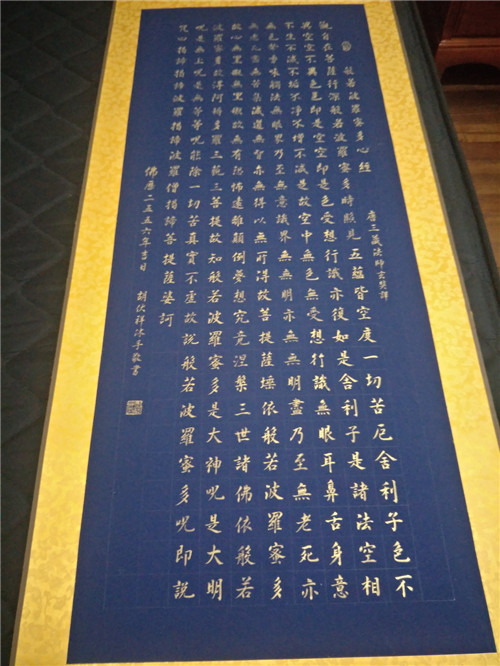 般若波羅蜜多心經 唐三藏法師玄奘譯
觀自在菩薩行深般若波羅蜜多時照見五蘊皆空度一切苦厄舍利子色不
異空空不異色色即是空空即是色受想行識亦復如是舍利子是諸法空相
不生不滅不垢不淨不增不減是故空中無色無受想行識無眼耳鼻舌身意
無色聲香味觸法無眼界乃至無意識界無無明亦無無明盡乃至無老死亦
無老死盡無苦集滅道無智亦無得以無所得故菩提薩埵依般若波羅蜜多
故心無罣礙無罣礙故無有恐怖遠離顛倒夢想究竟涅槃三世諸佛依般若
波羅蜜多故得阿耨多羅三藐三菩提故知般若波羅蜜多是大神呪是大明
呪是無上呪是無等等呪能除一切苦真實不虛故說般若波羅蜜多呪即說
呪曰揭諦揭諦波羅揭諦波羅僧揭諦菩提薩婆訶
佛曆二五五六年吉日 祥沐手敬書